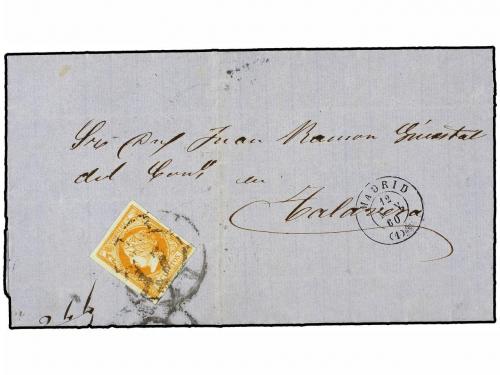 Sr Dn Juan Ramon Ginestal
del Con° en
Talavera
MADRID
12
60
(1)